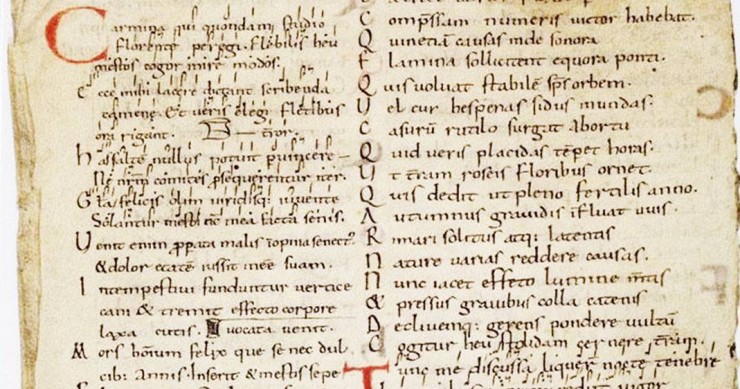 Carmina qui quondam studio
Florente peregi. Flebilis heu
mestos cogor inire modos.
Ecce mihi lacere dictant scribenda
camene. Et veris elegi fletibus
ora rigant.
has saltē nullus potuit
Ne comites psequerentur iter.
Gła felicis olim uiridisq; iuuente
Solantur mesti nc mea facta senis.
Uenit enim ppata malis inopina senect
& dolor etatē iussit inee suam.
Intempestiui funduntur vertice
cani & tremit effecto corpore
laxa cutis.
Mors hominū felix que se nec dul
cib; Annis Inserit & mestis sepe
Compssam numeris victor habebat.
Quinetiā causas unde sonora
Flamina sollicitent equora ponti.
Quis voluat stabilē sps orbem.
Uel cur hesperias sidus in undas.
Casurū rutilo surgat abortu
Quid veris placidas tēpet horas.
Ut tram roseis floribus ornet.
Quis dedit ut pleno fertilis anno.
Autumnus grauidis īfluat uuis.
Rimari solitus atq; latentis
Nature varias reddere causas.
Nunc iacet effeto lumine mtis
& pressus grauibus colla catenis
Decliuemq; gerens pondere vultū
Cogitur heu stolidam cernere tram.